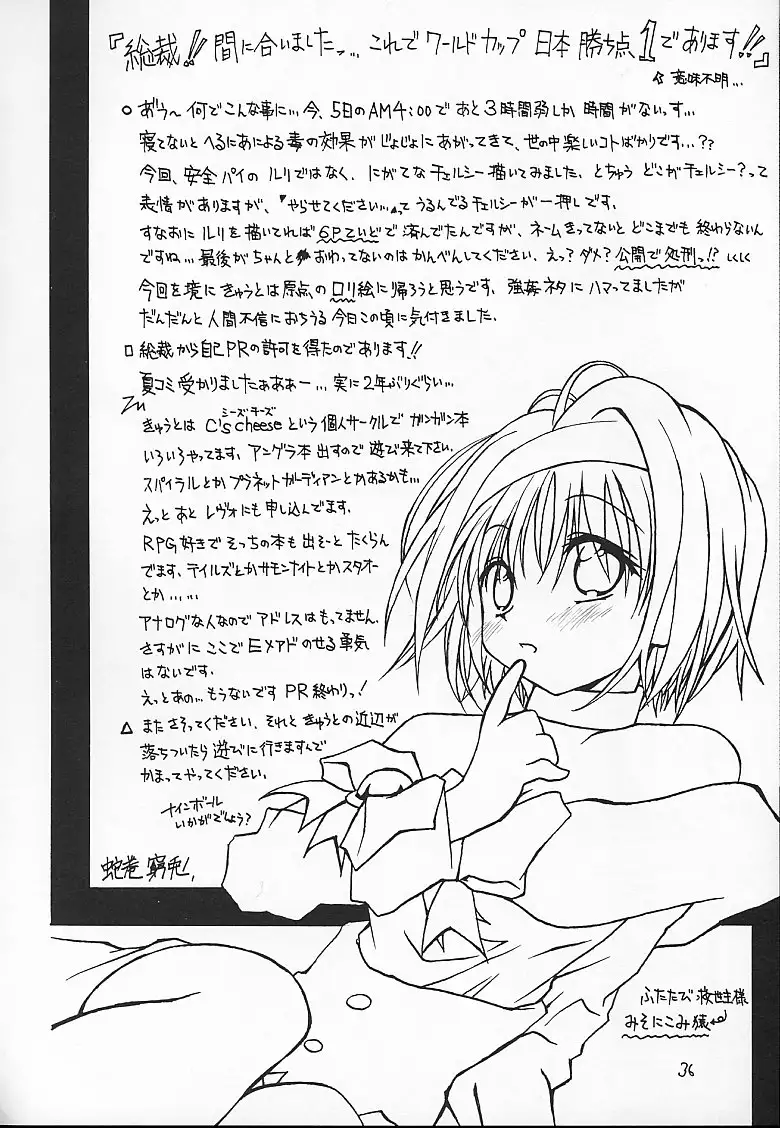 『総裁!! 間に合いましたッ… これで ワールドカップ 日本 勝ち点 1 であります!!』
意味不明…
○ あぅ〜 何でこんな事に… 今、5日のAM4:00で あと3時間弱しか 時間がないっす…
寝てないと へるにあによる毒の効果が じょじょにあがってきて、世の中楽しいコトばかりです…??
今回、安全パイの ルリではなく、にがてな チェルシー描いてみました、とちゅう どこがチェルシー?って
表情がありますが、『やらせてください…』って うるんでる チェルシーが 一押しです。
すなおに ルリを描いてれば 6Pていどで 済んでたんですが、ネームきってないと どこまでも 終わらないん
ですね… 最後がちゃんと おわってないのは かんべんしてください、えっ? ダメ? 公開で処刑っ!?
今回を境に きゅうとは 原点の ロリ絵に帰ろうと思うです、強姦ネタに ハマってましたが
だんだんと 人間不信におちうる 今日この頃に気付きました、
□ 総裁から自己PRの許可を得たのであります!!
夏コミ 受かりましたぁぁぁー… 実に2年ぶりぐらい…
きゅうとは C's cheese という 個人サークルで ガンガン本
シーズ・チーズ
いろいろやってます、アングラ本 出すので 遊び来て下さい、
スパイラルとか プラネットガーディアンとかあるかも…
えっと あと レヴォにも申し込んでます、
RPG好きで そっちの本も 出そーと たくらん
でます、テイルズとか サモンナイトとか スタオー
とか……
アナログな人なので アドレスはもってません、
さすがに ここで Eメアド のせる勇気
はないです、
えっとあの… もうないです PR終わりっ!
△ また さそってください、それと きゅうとの近辺が
落ちついたら 遊びに行きますんで
かまってやってください。
ナインボール
いかがでしょう?
ふたたび 救世主様
みそにこみ猿
36